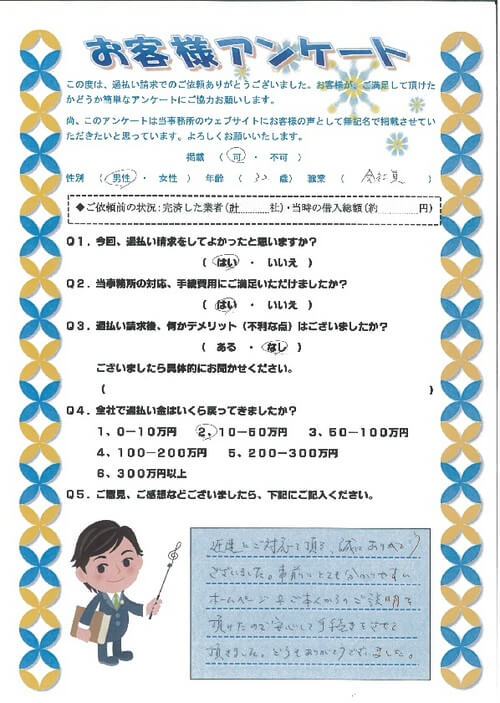 お客様アンケート
この度は、過払い請求でのご依頼ありがとうございました。お客様が、ご満足して頂けた
かどうか簡単なアンケートにご協力お願いします。
尚、このアンケートは当事務所のウェブサイトにお客様の声として無記名で掲載させてい
ただきたいと思っています。よろしくお願いいたします。
掲載 ( 可 ・ 不可 )
性別 ( 男性 ・ 女性 ) 年齢 ( 30 歳 ) 職業 ( 会社員 )
◆ご依頼前の状況:完済した業者(計 社)・当時の借入総額(約 円)
Q1.今回、過払い請求をしてよかったと思いますか?
( はい ・ いいえ )
Q2.当事務所の対応、手続費用にご満足いただけましたか?
( はい ・ いいえ )
Q3.過払い請求後、何かデメリット(不利な点)はございましたか?
( ある ・ なし )
ございましたら具体的にお聞かせください。
( )
Q4.全社で過払い金はいくら戻ってきましたか?
1、0-10万円 2、10-50万円 3、50-100万円
4、100-200万円 5、200-300万円
6、300万円以上
Q5.ご意見、ご感想などございましたら、下記にご記入ください。
ご対応して頂き、誠にありがとう
ございました。事前にとても分かりやすい
ホームページ のご説明を
頂けたので安心して手続きをさせて
頂きました。どうもありがとうございました。